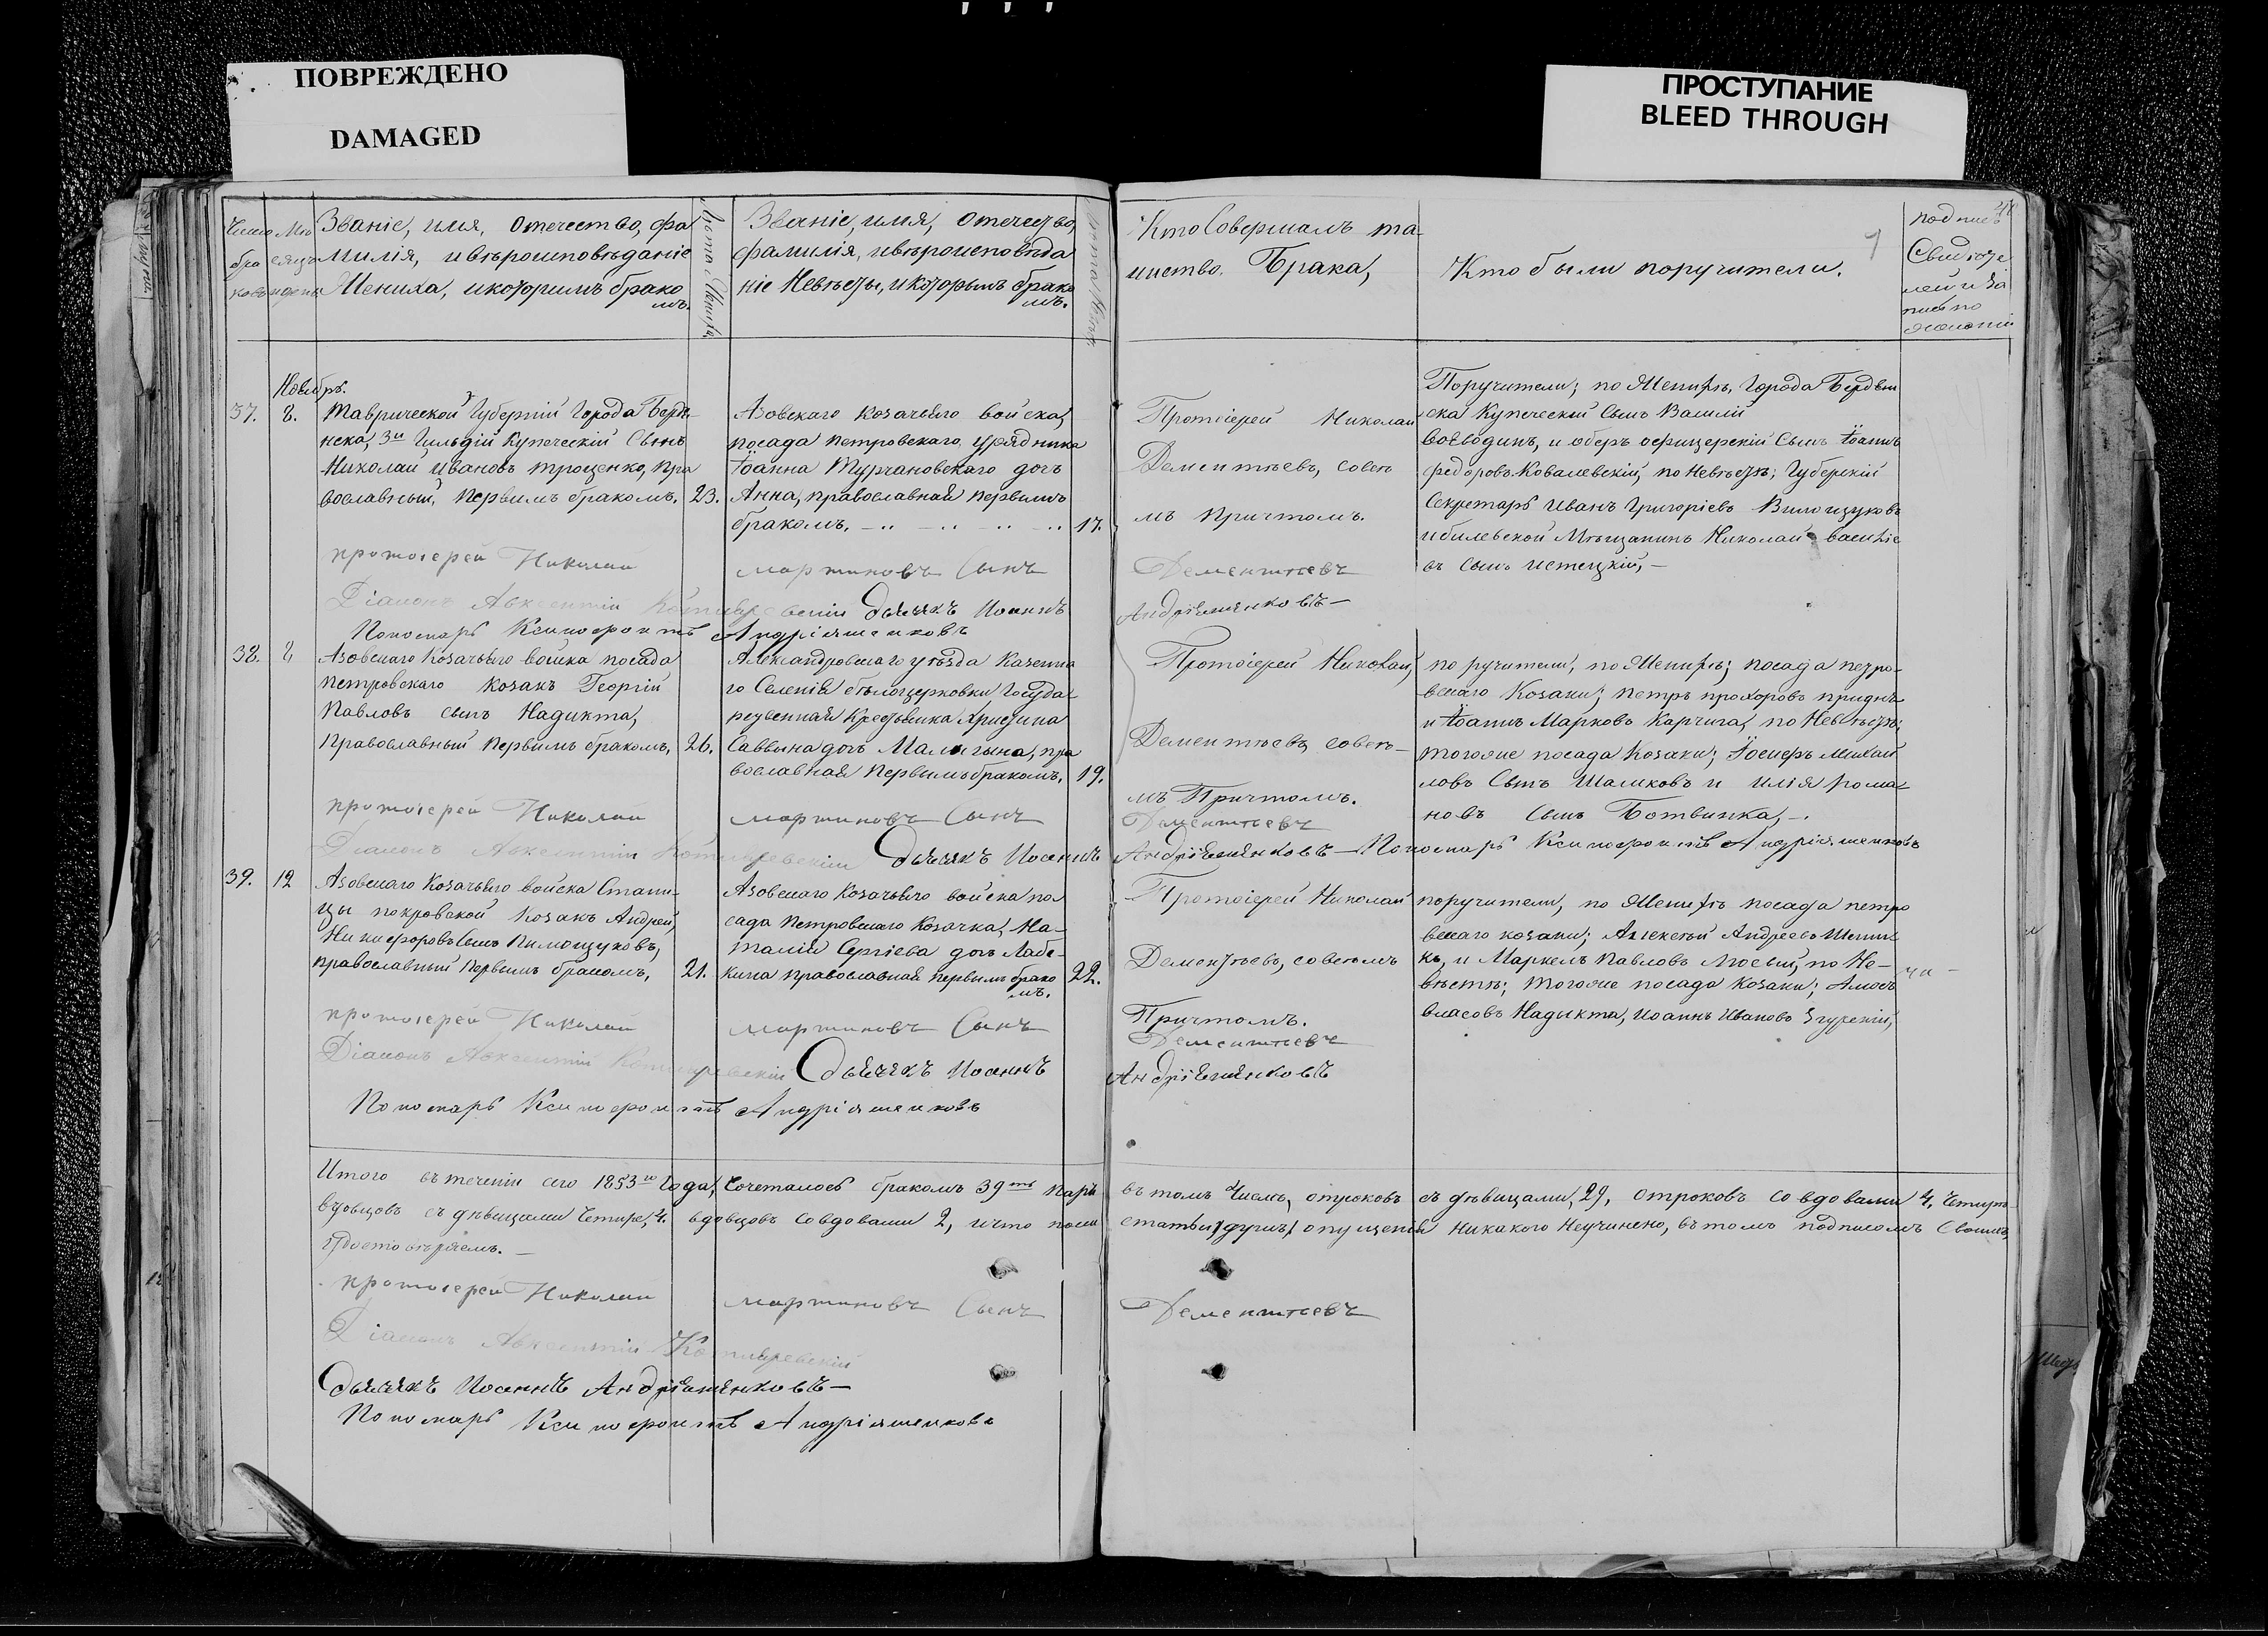 ПОВРЕЖДЕНО
DAMAGED
ПРОСТУПАНИЕ
BLEED THROUGH
Число бра ковъ
Мѣ сяцъ и день
Званіе, имя, отечество, фа
милія, ивѣроисповѣданіе
Жениха, икоторимъ брако
мъ.
Лѣта Жениха.
Званіе, имя, отечество,
фамилія, ивѣроисповѣда
ніе Невѣсты, икоторымъ брако
мъ.
Кто Совершалъ та-
инство Брака,
Кто были поручители.
подпись
Свидѣте
лей и За
пись по
желанію
Ноябрь.
37. 8.
Таврической Губерніи города Бердя-
нска, 3й Гильдіи Купеческій Сынъ
Николай Ивановъ Троценко, пра
вославный, первымъ бракомъ. 23.
Азовскаго козачьяго войска,
посада петровскаго, урядника
Іоанна Турчановскаго дочь
Анна, православная первымъ
бракомъ. 17.
Протоіерей Николай
Дементьевъ, совсѣ
мъ причтомъ.
Поручители; по Женихѣ, города Бердян
ска Купеческій Сынъ Василій
воеводинъ, и оберъ офицерскій Сынъ Іоаннъ
федоровъ Ковалевскій, по Невѣстѣ; Губерскій
Секретарь Иванъ Григоріевъ
Мѣщанинъ Николай василіе
въ Сынъ
протоіерей Николай мартиновъ Сынъ Дементьевъ
Діаконъ Авксентій Котляревскій Дьячекъ Иоаннъ Андріяшенковъ
Пономарь Ксинофонтъ Андріяшенковъ
38. 8
Азовскаго Козачьяго войска посада
петровскаго козакъ Георгій
Павловъ сынъ Надикта,
Православный первымъ бракомъ, 26.
Александровскаго уѣзда Казенна
го Селенія бѣлоцерковки Госуда
рственная крестьянка Христина
Саввина дочь Малигина, пра
вославная первымъ бракомъ. 19.
Протоіерей Николай,
Дементьевъ совсѣ-
мъ Причтомъ.
по ручители, по Женихѣ; посада петро-
вскаго Козаки; петръ прохоровъ
и Іоаннъ Марковъ Карчига, по Невѣстѣ;
тогоже посада Козаки; Іосифъ Михай
ловъ Сынъ Шалиховъ и Илія Рома
новъ Сынъ Ботвинка, -.
протоіерей Николай мартиновъ Сынъ Дементьевъ
Діаконъ Авксентій Котляревскій Дьячекъ Иоаннъ Андріяшенковъ - Пономарь Ксинофонтъ Андріяшенковъ
39. 12
Азовскаго Козачьяго войска Стани-
цы покровской Козакъ Андрей
Никифоровъ Сынъ
православный первымъ бракомъ, 21.
Азовскаго Козачьяго войска по
сада Петровскаго Козачка, На-
талія Сергіева дочь Лабе-
кина православная первымъ брако
мъ. 22.
Протоіерей Николай
Дементьевъ, совсѣмъ
Причтомъ.
поручители, по Женихѣ посада петро
вскаго козаки; Алексѣй Андреевъ
и Маркелъ Павловъ по Не-
вѣстѣ; тогоже посада козаки; Амосъ
власовъ Надикта, Иоаннъ Ивановъ
протоіерей Николай мартиновъ Сынъ Дементьевъ
Діаконъ Авксентій Котляревскій Дьячекъ Иоаннъ Андріяшенковъ
Пономарь Ксинофонтъ Андріяшенковъ
Итого въ теченіи сего 1853го Года, Сочеталось бракомъ 39ть паръ въ томъ Числѣ, отроковъ съ дѣвицами, 29, отроковъ со вдовами 4, Четыре
вдовцовъ съ дѣвицами Четыре, 4. вдовцовъ совдовами 2, ичто опущенія никакого Неучинено, въ томъ подписомъ Своимъ,
удостовѣряемъ. -
протоіерей Николай мартиновъ Сынъ Дементьевъ
Діаконъ Авксентій Котляревскій
Дьячекъ Иоаннъ Андріяшенковъ -
Пономарь Ксинофонтъ Андріяшенковъ